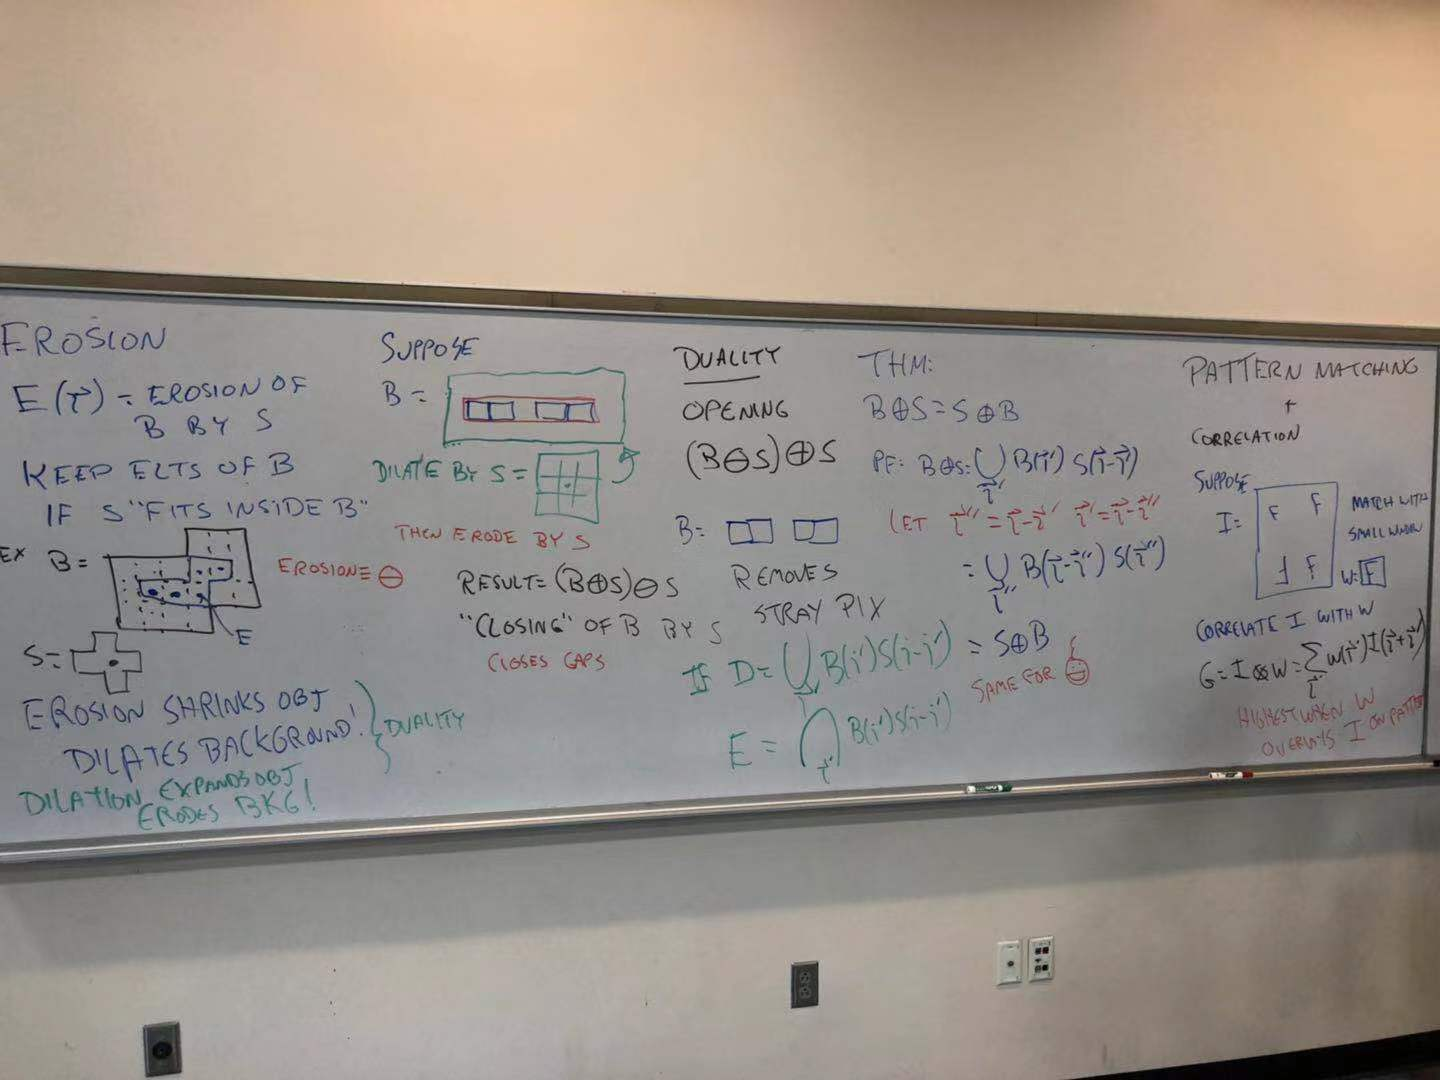 EROSION
E(i⃗) = EROSION OF
B BY S
KEEP ELTS OF B
IF S "FITS INSIDE B"
EX B =
EROSION ≡ ⊖
E
S =
EROSION SHRINKS OBJ
DILATES BACKGROUND!
DILATION EXPANDS OBJ
ERODES BKG!
} DUALITY
SUPPOSE
B =
DILATE BY S =
THEN ERODE BY S
RESULT = (B⊕S)⊖S
"CLOSING" OF B BY S
CLOSES GAPS
DUALITY
OPENING
(B⊖S)⊕S
B =
REMOVES
STRAY PIX
IF D = ⋃i⃗' B(i⃗')S(i⃗-i⃗')
E = ⋂i⃗' B(i⃗')S(i⃗-i⃗')
THM:
B⊕S = S⊕B
PF: B⊕S = ⋃i⃗' B(i⃗') S(i⃗-i⃗')
LET i⃗'' = i⃗-i⃗' i⃗' = i⃗-i⃗''
= ⋃i⃗'' B(i⃗-i⃗'') S(i⃗'')
= S⊕B
SAME FOR ⊖
PATTERN MATCHING
+
CORRELATION
SUPPOSE
I =
F F
F
MATCH WITH
SMALL WINDOW
W = F
CORRELATE I WITH W
G = I ⊗ W = ∑i⃗' W(i⃗')I(i⃗+i⃗')
HIGHEST WHEN W
OVERLAYS I ON